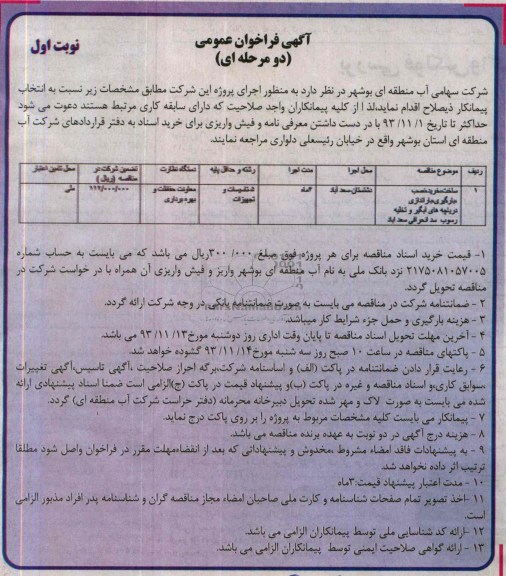 آگهی فراخوان عمومی
(دو مرحله ای)
نوبت اول
شرکت سهامی آب منطقه ای بوشهر در نظر دارد به منظور اجرای پروژه این شرکت مطابق مشخصات زیر نسبت به انتخاب
پیمانکار ذیصلاح اقدام نماید،لذ ا از کلیه پیمانکاران واجد صلاحیت که دارای سابقه کاری مرتبط هستند دعوت می شود
حداکثر تا تاریخ ۹۳/۱۱/۱ با در دست داشتن معرفی نامه و فیش واریزی برای خرید اسناد به دفتر قراردادهای شرکت آب
منطقه ای استان بوشهر واقع در خیابان رئیسعلی دلواری مراجعه نمایند.
ردیف موضوع مناقصه محل اجرا مدت اجرا رشته و حداقل پایه دستگاه نظارت تضمین شرکت در مناقصه (ریال) محل تامین اعتبار
۱ ساخت،خرید،نصب دشتستان-سعد آباد ۳ماه تاسیسات و معاونت حفاظت و ملی
بارگیری،باراندازی تجهیزات بهره برداری
دریچه های آبگیر و تخلیه
رسوب سد انحرافی سعد آباد
۱- قیمت خرید اسناد مناقصه برای هر پروژه فوق مبلغ ۳۰۰/۰۰۰ریال می باشد که می بایست به حساب شماره
۲۱۷۵۰۸۱۰۵۷۰۰۵ نزد بانک ملی به نام آب منطقه ای بوشهر واریز و فیش واریزی آن همراه با در خواست شرکت در
مناقصه تحویل گردد.
۲ - ضمانتنامه شرکت در مناقصه می بایست به صورت ضمانتنامه بانکی در وجه شرکت ارائه گردد.
۳ - هزینه بارگیری و حمل جزء شرایط کار میباشد.
۴ - آخرین مهلت تحویل اسناد مناقصه تا پایان وقت اداری روز دوشنبه مورخ۹۳/۱۱/۱۳ می باشد.
۵ - پاکتهای مناقصه در ساعت ۱۰ صبح روز سه شنبه مورخ۹۳/۱۱/۱۴ گشوده خواهد شد.
۶ - رعایت قرار دادن ضمانتنامه در پاکت (الف) و اساسنامه شرکت،برگه احراز صلاحیت ،آگهی تاسیس،آگهی تغییرات
،سوابق کاری،و اسناد مناقصه و غیره در پاکت (ب)و پیشنهاد قیمت در پاکت (ج)الزامی است ضمنا اسناد پیشنهادی ارائه
شده می بایست به صورت لاک و مهر شده تحویل دبیرخانه محرمانه (دفتر حراست شرکت آب منطقه ای) گردد.
۷ - پیمانکار می بایست کلیه مشخصات مربوط به پروژه را بر روی پاکت درج نماید.
۸ - هزینه درج آگهی در دو نوبت به عهده برنده مناقصه می باشد.
۹ - به پیشنهادات فاقد امضاء مشروط ،مخدوش و پیشنهاداتی که بعد از انقضاءمهلت مقرر در فراخوان واصل شود مطلقا
ترتیب اثر داده نخواهد شد.
۱۰ - مدت اعتبار پیشنهاد قیمت:۳ماه
۱۱ -اخذ تصویر تمام صفحات شناسنامه و کارت ملی صاحبان امضاء مجاز مناقصه گران و شناسنامه پدر افراد مذبور الزامی
است.
۱۲ -ارائه کد شناسایی ملی توسط پیمانکاران الزامی می باشد.
۱۳ - ارائه گواهی صلاحیت ایمنی توسط پیمانکاران الزامی می باشد.